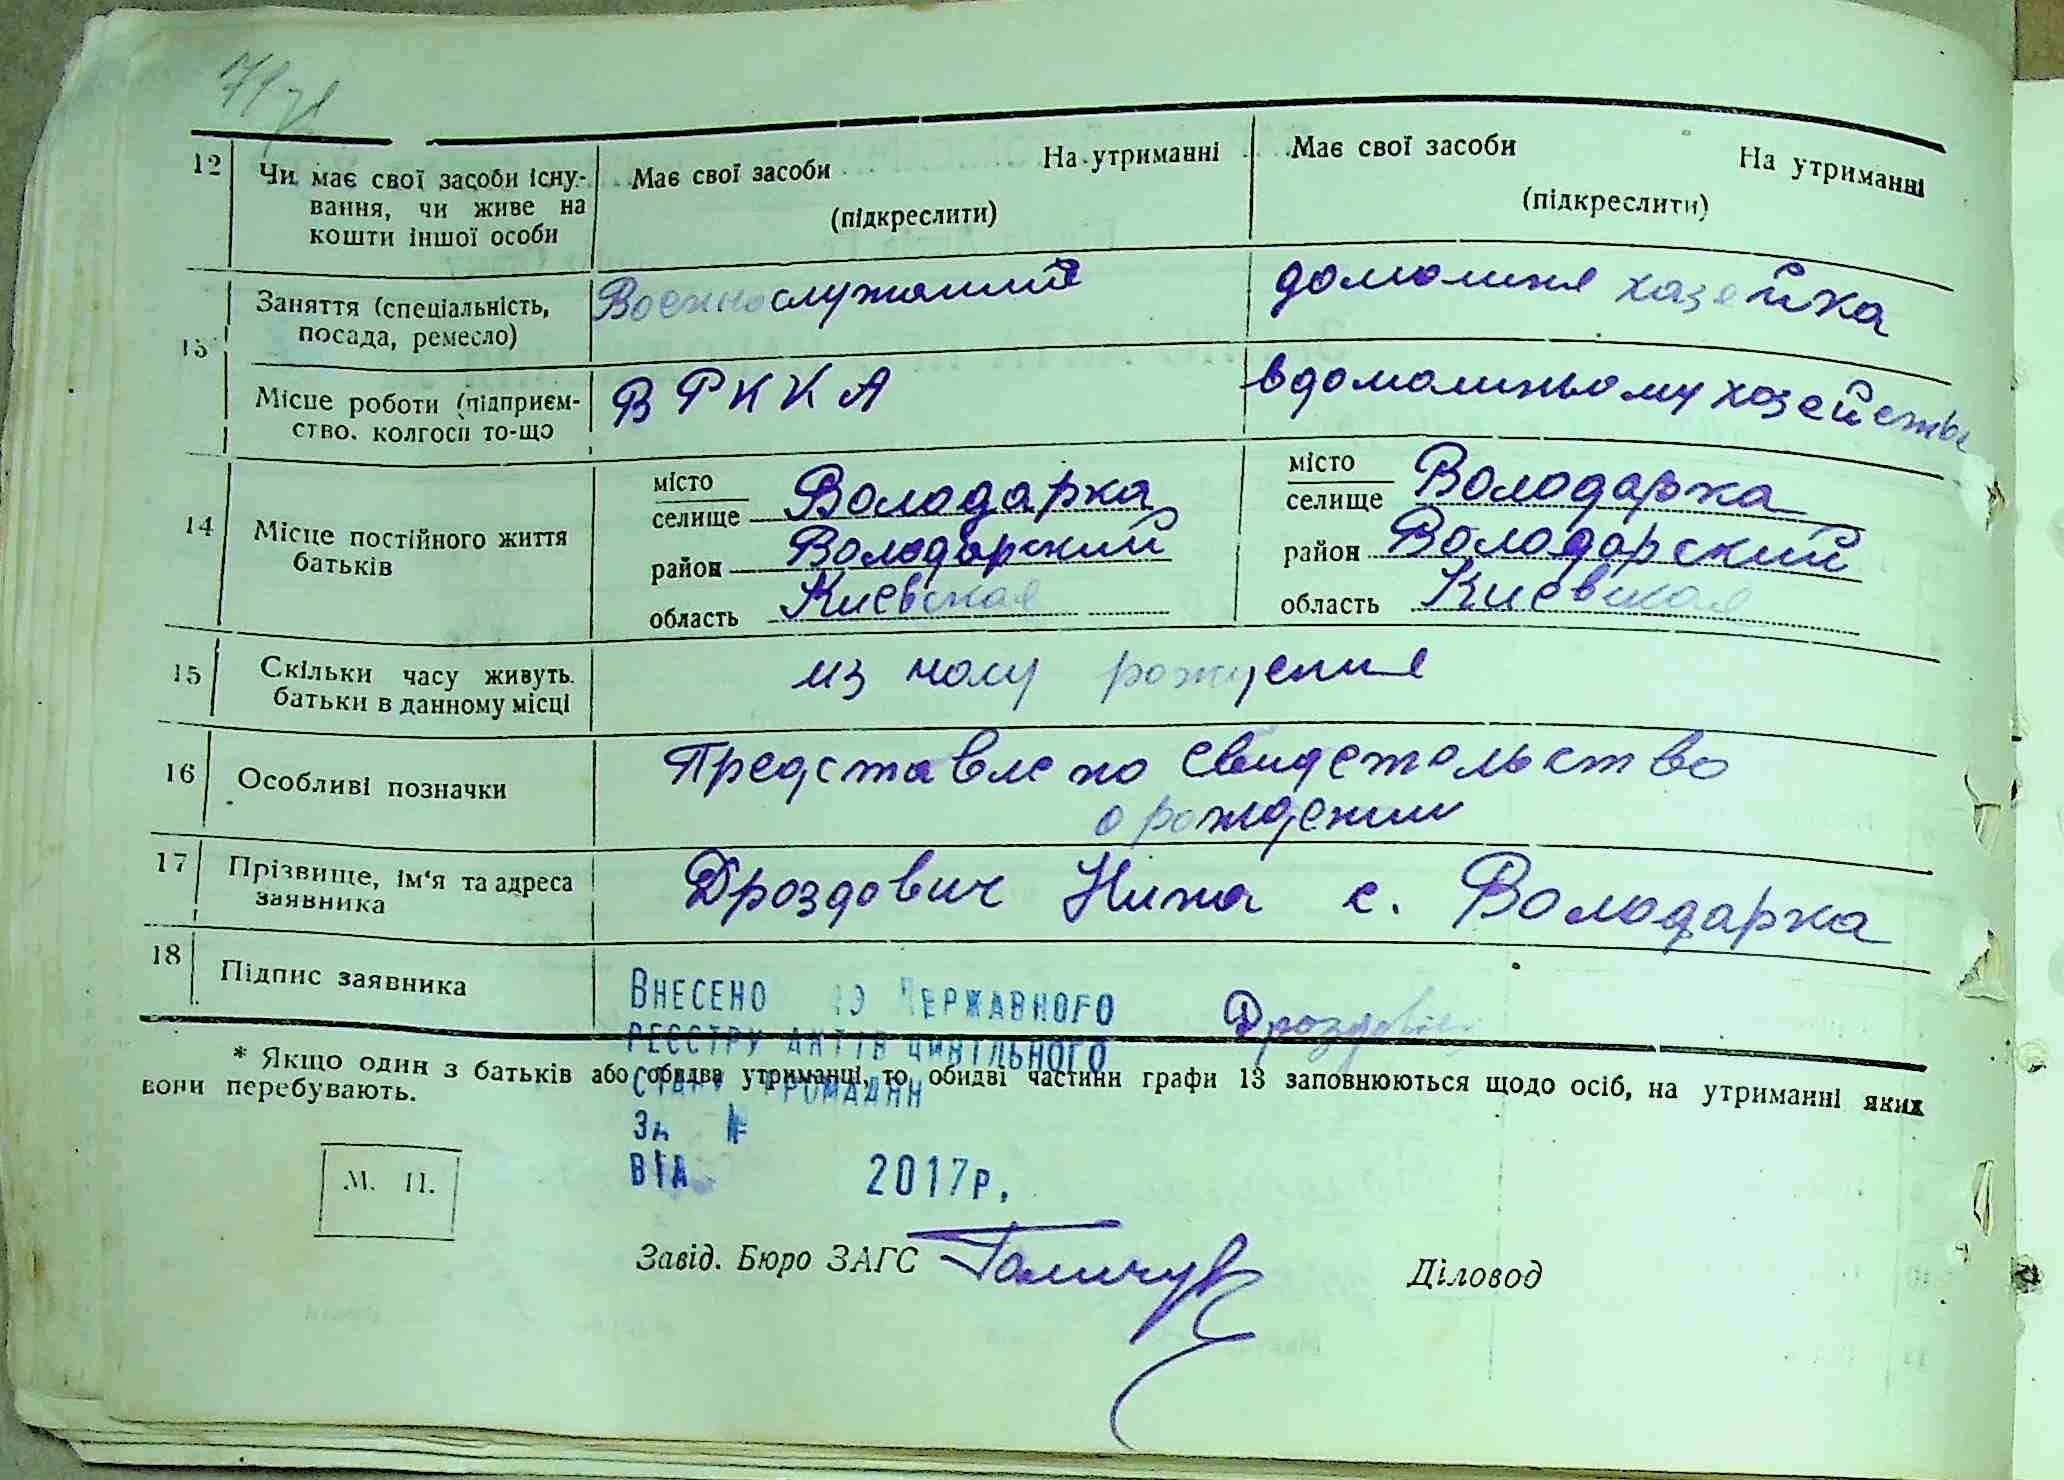 12
Чи має свої засоби існу-
вання, чи живе на
кошти іншої особи
Має свої засоби На утриманні
(підкреслити)
Має свої засоби На утриманні
(підкреслити)
13
Заняття (спеціальність,
посада, ремесло)
Военнослужащий
домошня хазейка
Місце роботи (підприєм-
ство, колгосп то-що
В РККА
в домошньому хозействе
14
Місце постійного життя
батьків
місто
селище Володарка
район Володарский
область Киевская
місто
селище Володарка
район Володарский
область Киевская
15
Скільки часу живуть
батьки в данному місці
из часу рождения
16
Особливі позначки
Представлено свидетельство
о рождении
17
Прізвище, ім'я та адреса
заявника
Дроздович Нина с. Володарка
18
Підпис заявника
Дроздович
Внесено до Державного
реєстру актів цивільного
стану громадян
За №
від 2017р.
* Якщо один з батьків або обидва утриманці, то обидві частини графи 13 заповнюються щодо осіб, на утриманні яких
вони перебувають.
М. П.
Завід. Бюро ЗАГС
Діловод